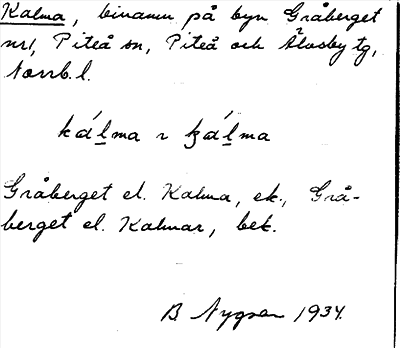 Kalma, binamn på byn Gråberget
nr 1, Piteå sn, Piteå och Älvsby tg,
Norrb. l.
ká̱lma r ʒá̱lma
Gråberget el. Kalma, ek., Grå-
berget el. Kalmar, bek.
B. Nygren 1934.